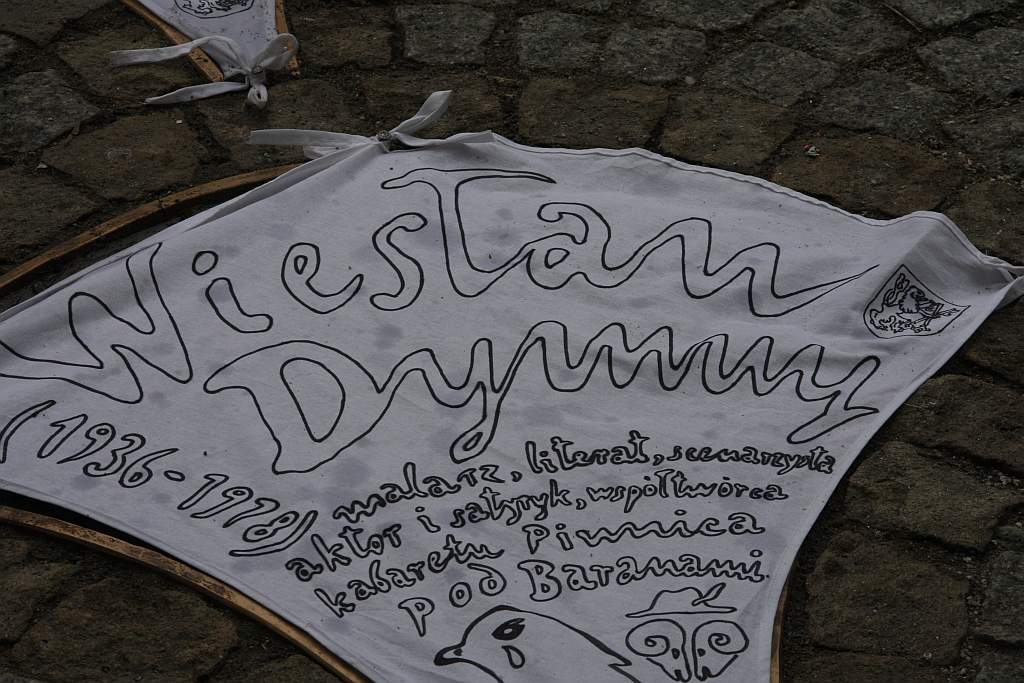 Wiesław
Dymny
(1936-1978)
malarz, literat, scenarzysta
aktor i satyryk, współtwórca
kabaretu Piwnica
pod Baranami.